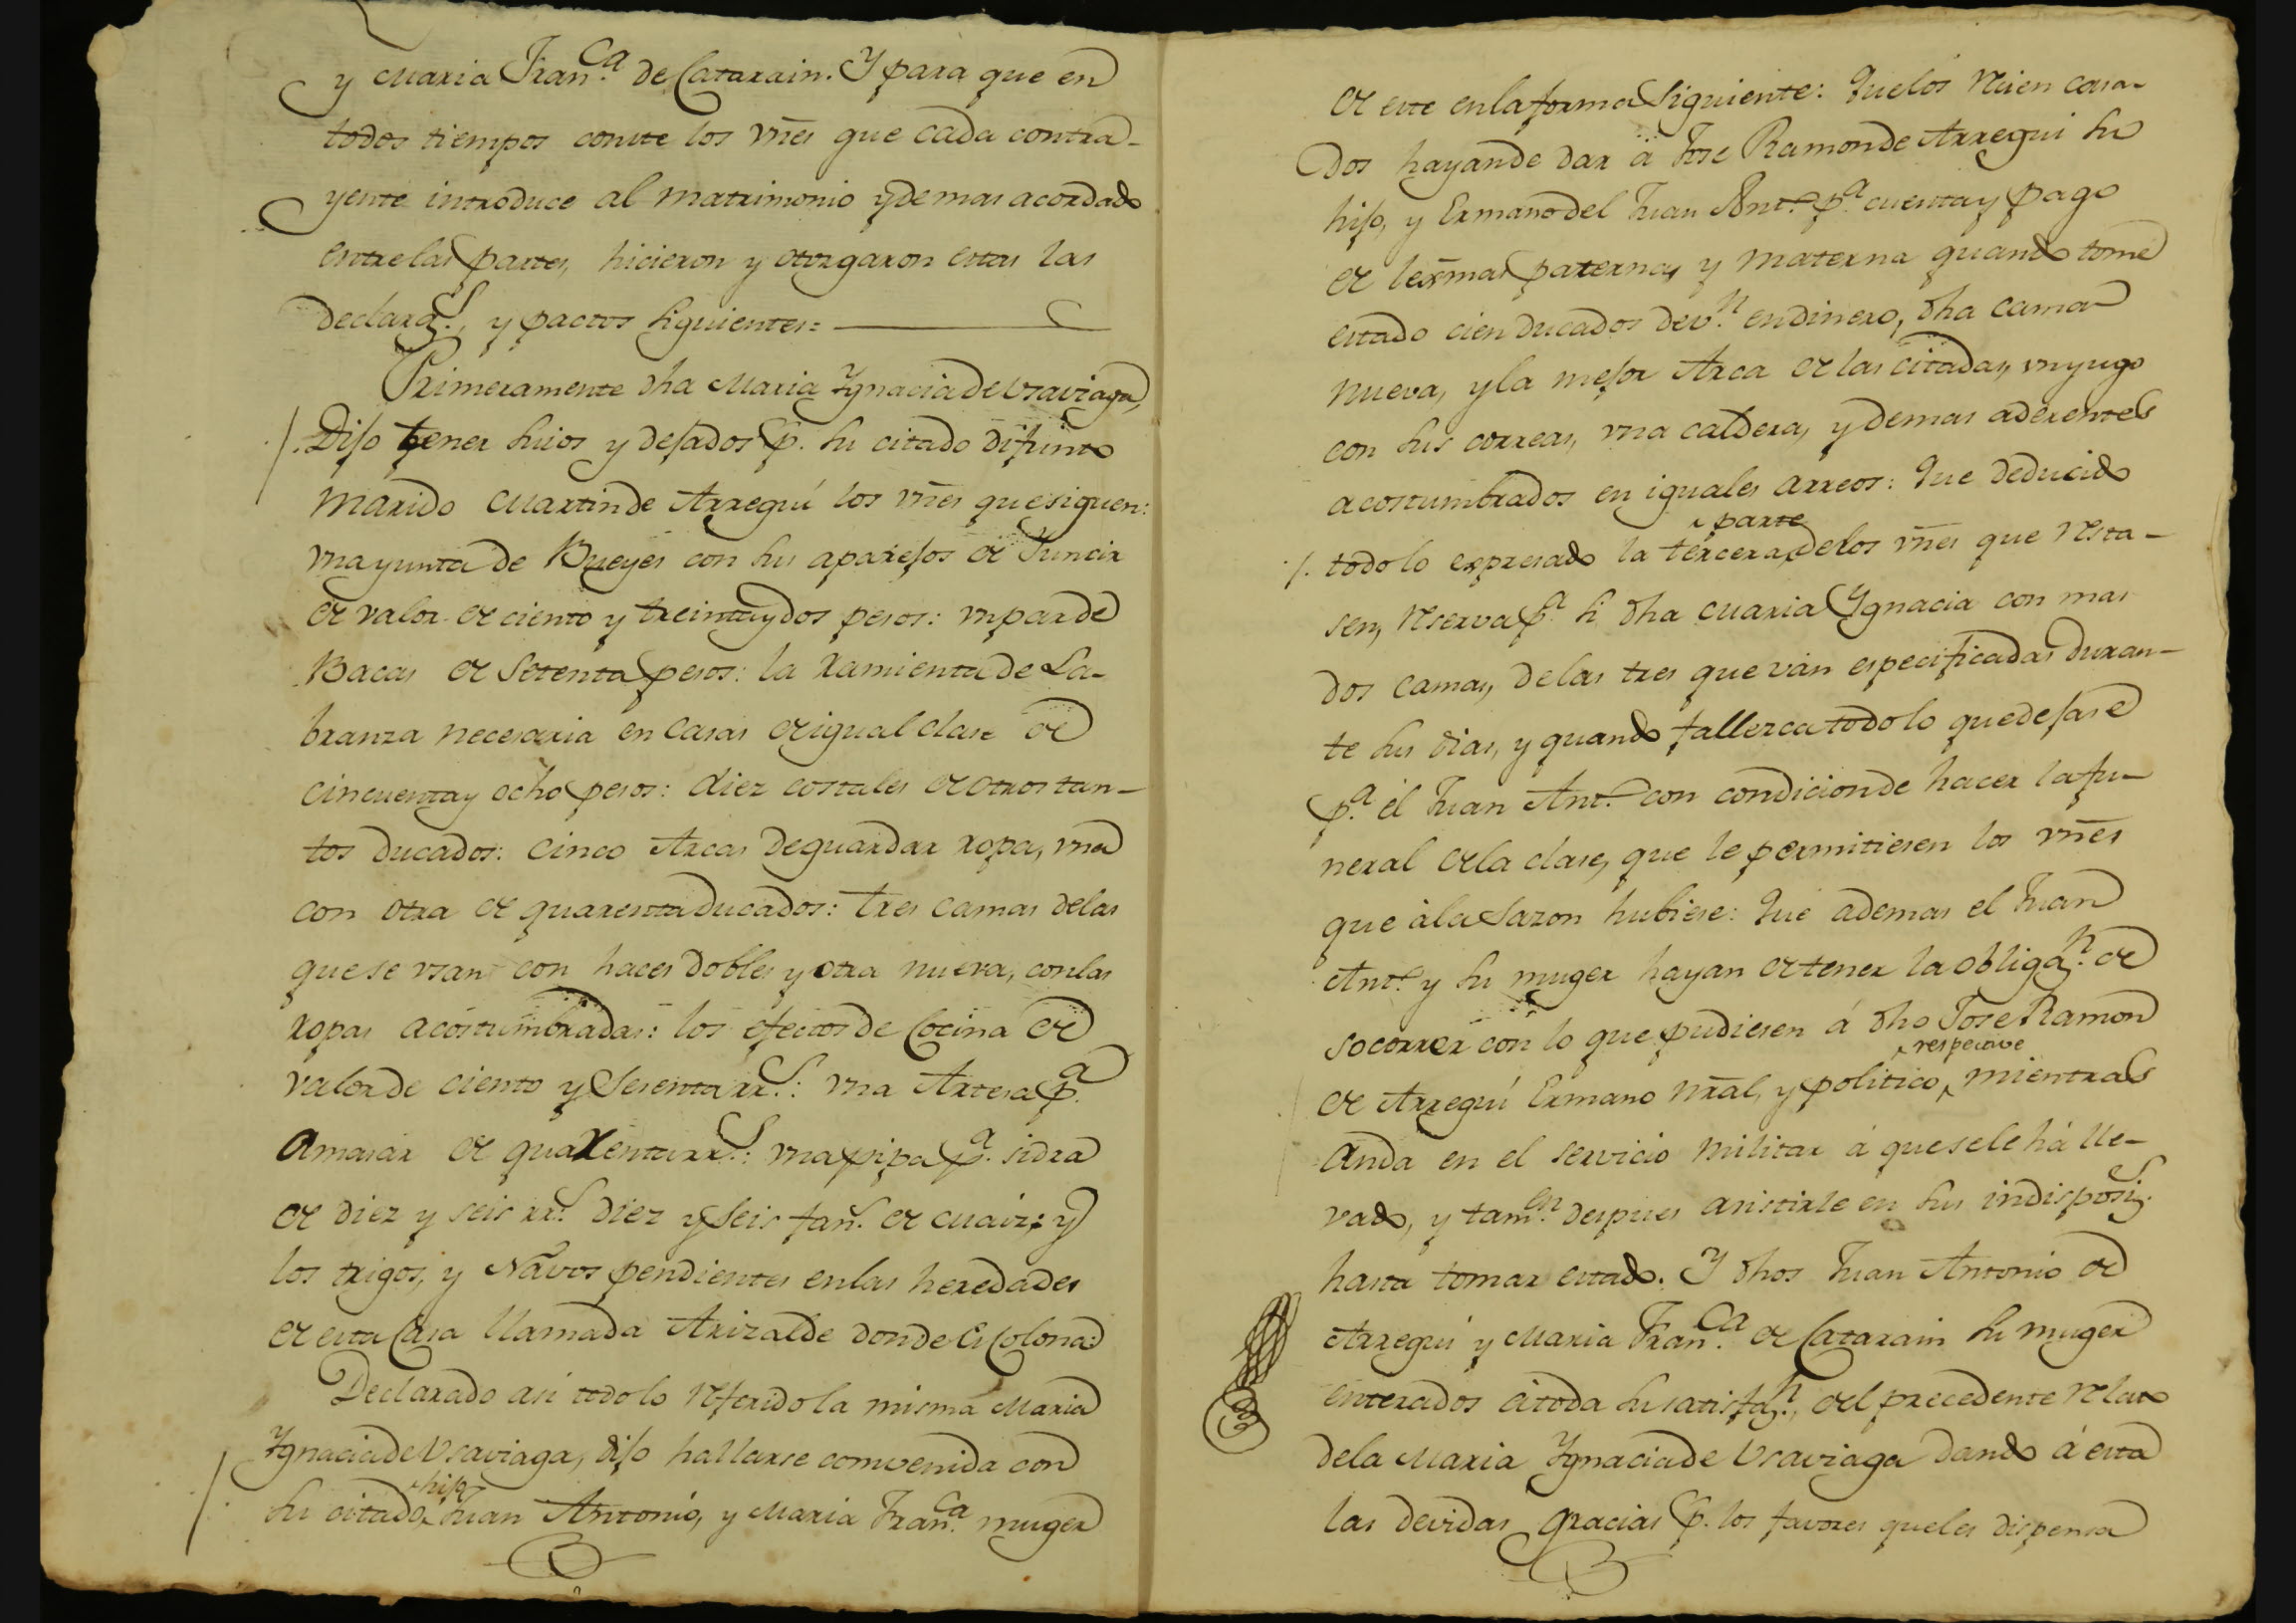 y Maria Fran.ca de Catarain. Y para que en
todos tiempos conste los vnēs que cada contra-
yente introduce al matrimonio y demas acordado
entre las partes, hicieron y otorgaron estas las
declaraz.s, y pactos siguientes:
Primeramente dha Maria Ygnacia de Vsaviaga,
Dijo tener suios y dejados p. su citado difunto
marido Martin de Arregui los vnēs que siguen:
vna yunta de Bueyes con sus aparejos de Juncir
de valor de ciento y treinta y dos pesos: vn par de
Bacas de Setenta pesos: la xamienta de La-
branza necesaria en casas de igual clase de
cincuenta y ocho pesos: diez costales de otros tan-
tos ducados: cinco Arcas de guardar ropa, vna
con otra de quarenta ducados: tres camas de las
que se vsan con haces dobles y otra nueva, con las
ropas acostumbradas: los efectos de Cocina de
valor de ciento y Sesenta rr.s: vna Artesa p.a
amasar de quarenta rr.s: vna pipa p.a sidra
de diez y seis rr.s diez y seis fan.s de Maiz: y
los trigos, y Navos pendientes en las heredades
de esta Casa llamada Arizalde donde es Colona:
Declarado asi todo lo referido la misma Maria
Ygnacia de Vsaviaga, dijo hallarse convenida con
hijo
su citado Juan Antonio, y Maria Fran.ca muger
de este en la forma siguiente: Que los recien casa-
dos hayan de dar á Jose Ramon de Arregui su
hijo, y Ermano del Juan Ant.o p.a cuenta y pago
de lexmas paterna, y materna quando tome
estado cien ducados de v.n en dinero, dha cama
nueva, y la mejor Arca de las citadas, vn yugo
con sus correas, vna caldera, y demas aderentes
acostumbrados en iguales arreos: Que deducido
parte
todo lo expresado la tercera de los vnēs que resta-
sen, reserva p.a si dha Maria Ygnacia con mas
dos camas, de las tres que ván especificadas duran-
te sus dias, y quando fallezca todo lo que dejase
p.a él Juan Ant.o con condicion de hacer la fu-
neral de la clase, que le permitiesen los vnēs
que á la sazon hubiese: Que ademas el Juan
Ant.o y su muger hayan de tener la obligaz.n de
socorrer con lo que pudiesen á dho Jose Ramon
respective
de Arregui Ermano nral, y politico, mientras
anda en el servicio militar á que se le há lle-
vado, y tam.en despues asistirle en sus indisposiz.s
hasta tomar estado. Y dhos Juan Antonio de
Arregui y Maria Fran.ca de Catarain su muger
enterados á toda su satisfaz.n, del precedente relato
de la Maria Ygnacia de Vsaviaga dando á esta
las devidas gracias p. los favores que les dispensa